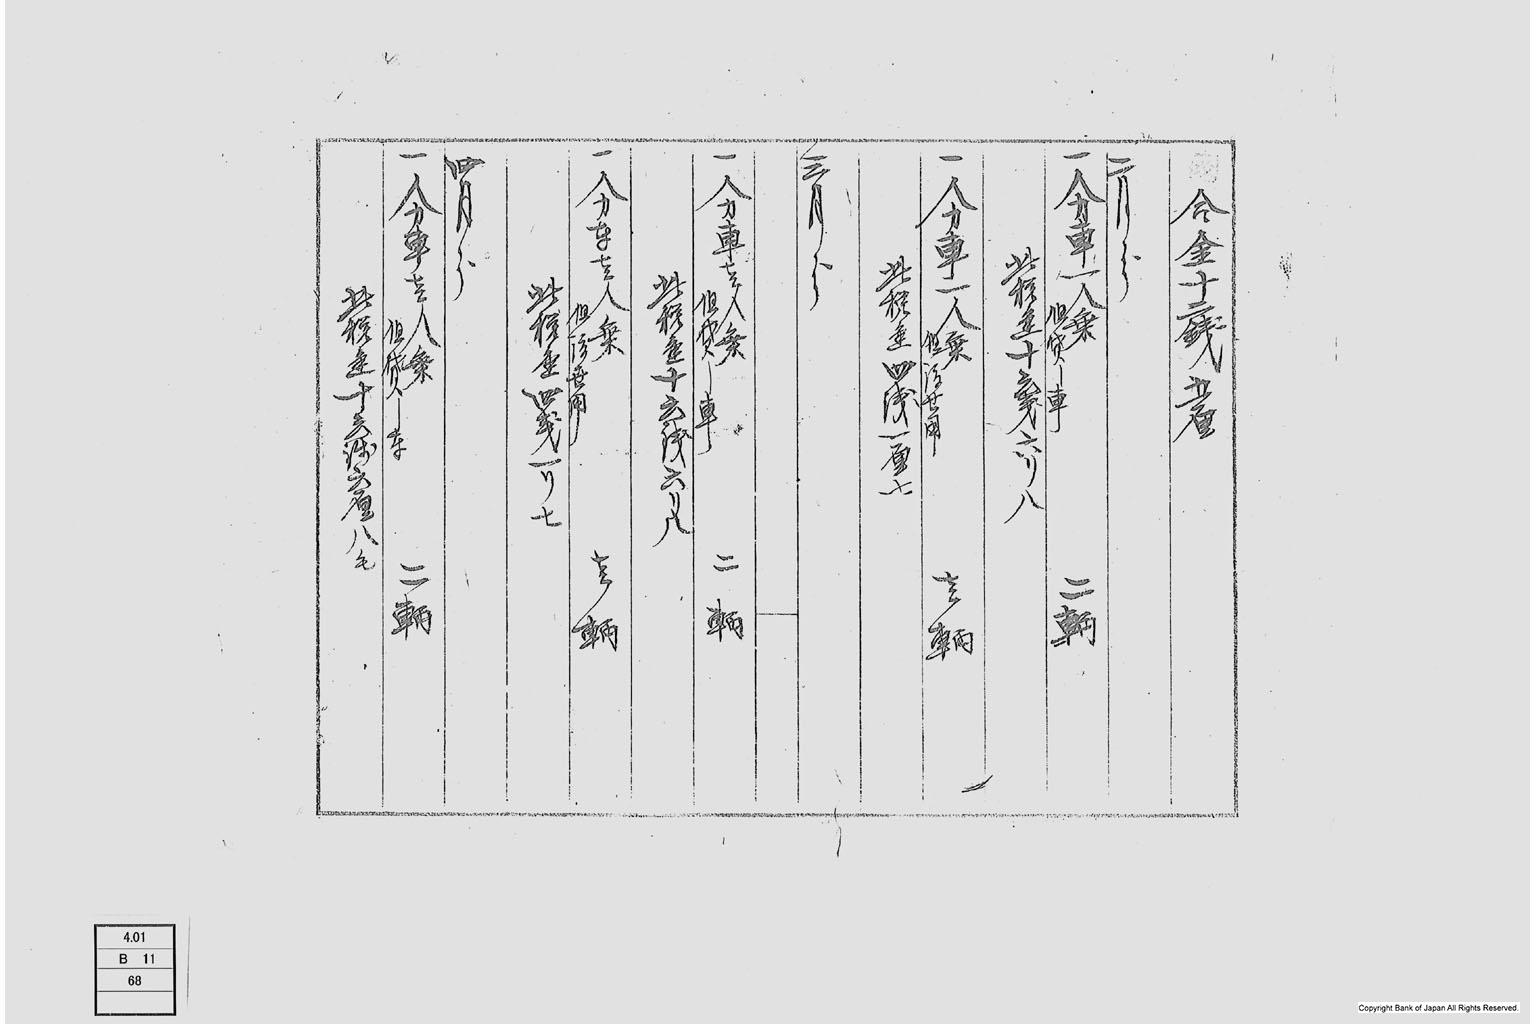 合金十二銭五厘
二月分
一人力車一人乗 二輌
但貸シ車
此税金十六銭六リ八
一人力車一人乗 壱輌
但渡世用
此税金四銭一厘七
三月分
一人力車壱人乗 二輌
但貸シ車
此税金十六銭六リ八
一人力車壱人乗 壱輌
但渡世用
此税金四銭一リ七
四月分
一人力車壱人乗 二輌
但貸シ車
此税金十六銭六厘八毛
4.01
B 11
68
Copyright Bank of Japan All Rights Reserved.